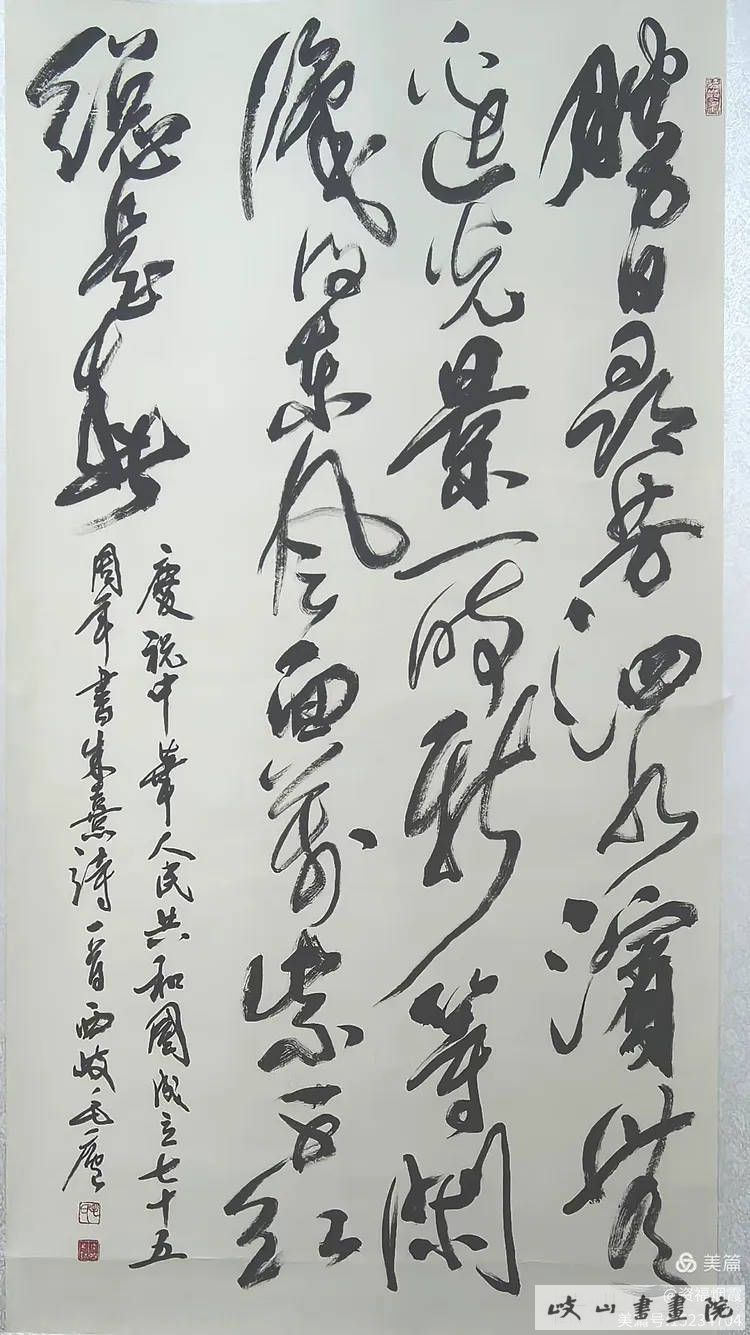 勝日尋芳泗水濱無
邊光景一時新等閑
識得東風面萬紫千紅
總是春
慶祝中華人民共和國成立七十五
周年書朱熹詩一首西岐毛廬
美篇
@资福烟霞
岐山書畫院